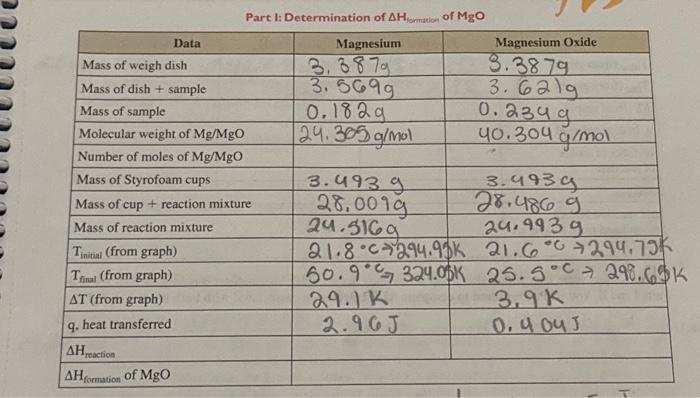 Part I: Determination of ΔHformation of MgO
Data Magnesium Magnesium Oxide
Mass of weigh dish 3.387g 3.387g
Mass of dish + sample 3.569g 3.621g
Mass of sample 0.182g 0.234g
Molecular weight of Mg/MgO 24.305g/mol 40.304 g/mol
Number of moles of Mg/MgO
Mass of Styrofoam cups 3.493 g 3.493g
Mass of cup + reaction mixture 28.009g 28.486 g
Mass of reaction mixture 24.516g 24.993g
Tinitial (from graph) 21.8°C→294.95K 21.6°C→294.75K
Tfinal (from graph) 50.9°C→324.05K 25.5°C→298.65K
ΔT (from graph) 29.1K 3.9K
q, heat transferred 2.96J 0.404J
ΔHreaction
ΔHformation of MgO